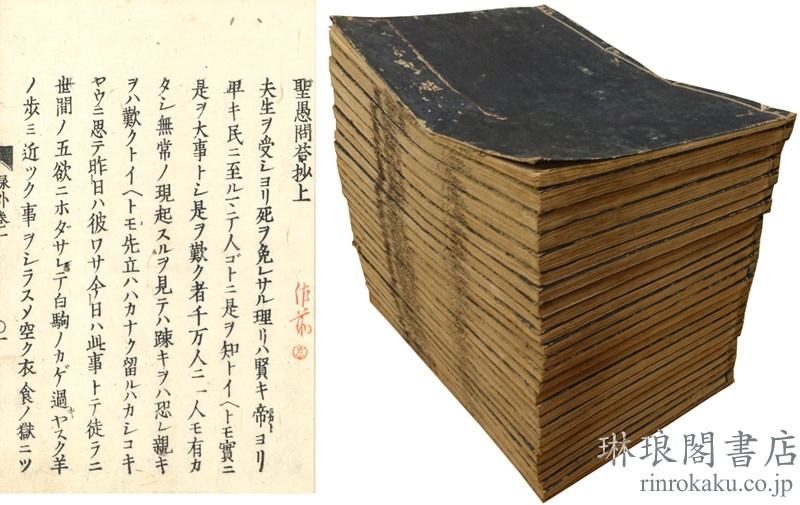 聖愚問荅抄上
夫生ヲ受シヨリ死ヲ免レサル理リハ賢キ帝ヨリ
卑キ民ニ至ルマテ人ゴトニ是ヲ知トイヘトモ實ニ
是ヲ大事トシ是ヲ歎ク者千万人ニ一人モ有カ
タシ無常ノ現起スルヲ見テハ疎キヲハ恐レ親キ
ヲハ歎クトイヘトモ先立ハハカナク留ルハカシコキ
ヤウニ思テ昨日ハ彼ワサ今日ハ此事トテ徒ラニ
世間ノ五欲ニホダサレテ白駒ノカゲ過ヤスク羊
ノ歩ミ近ツク事ヲシラスメ空ク衣食ノ獄ニツ
録外巻一
琳琅閣書店
rinrokaku.co.jp